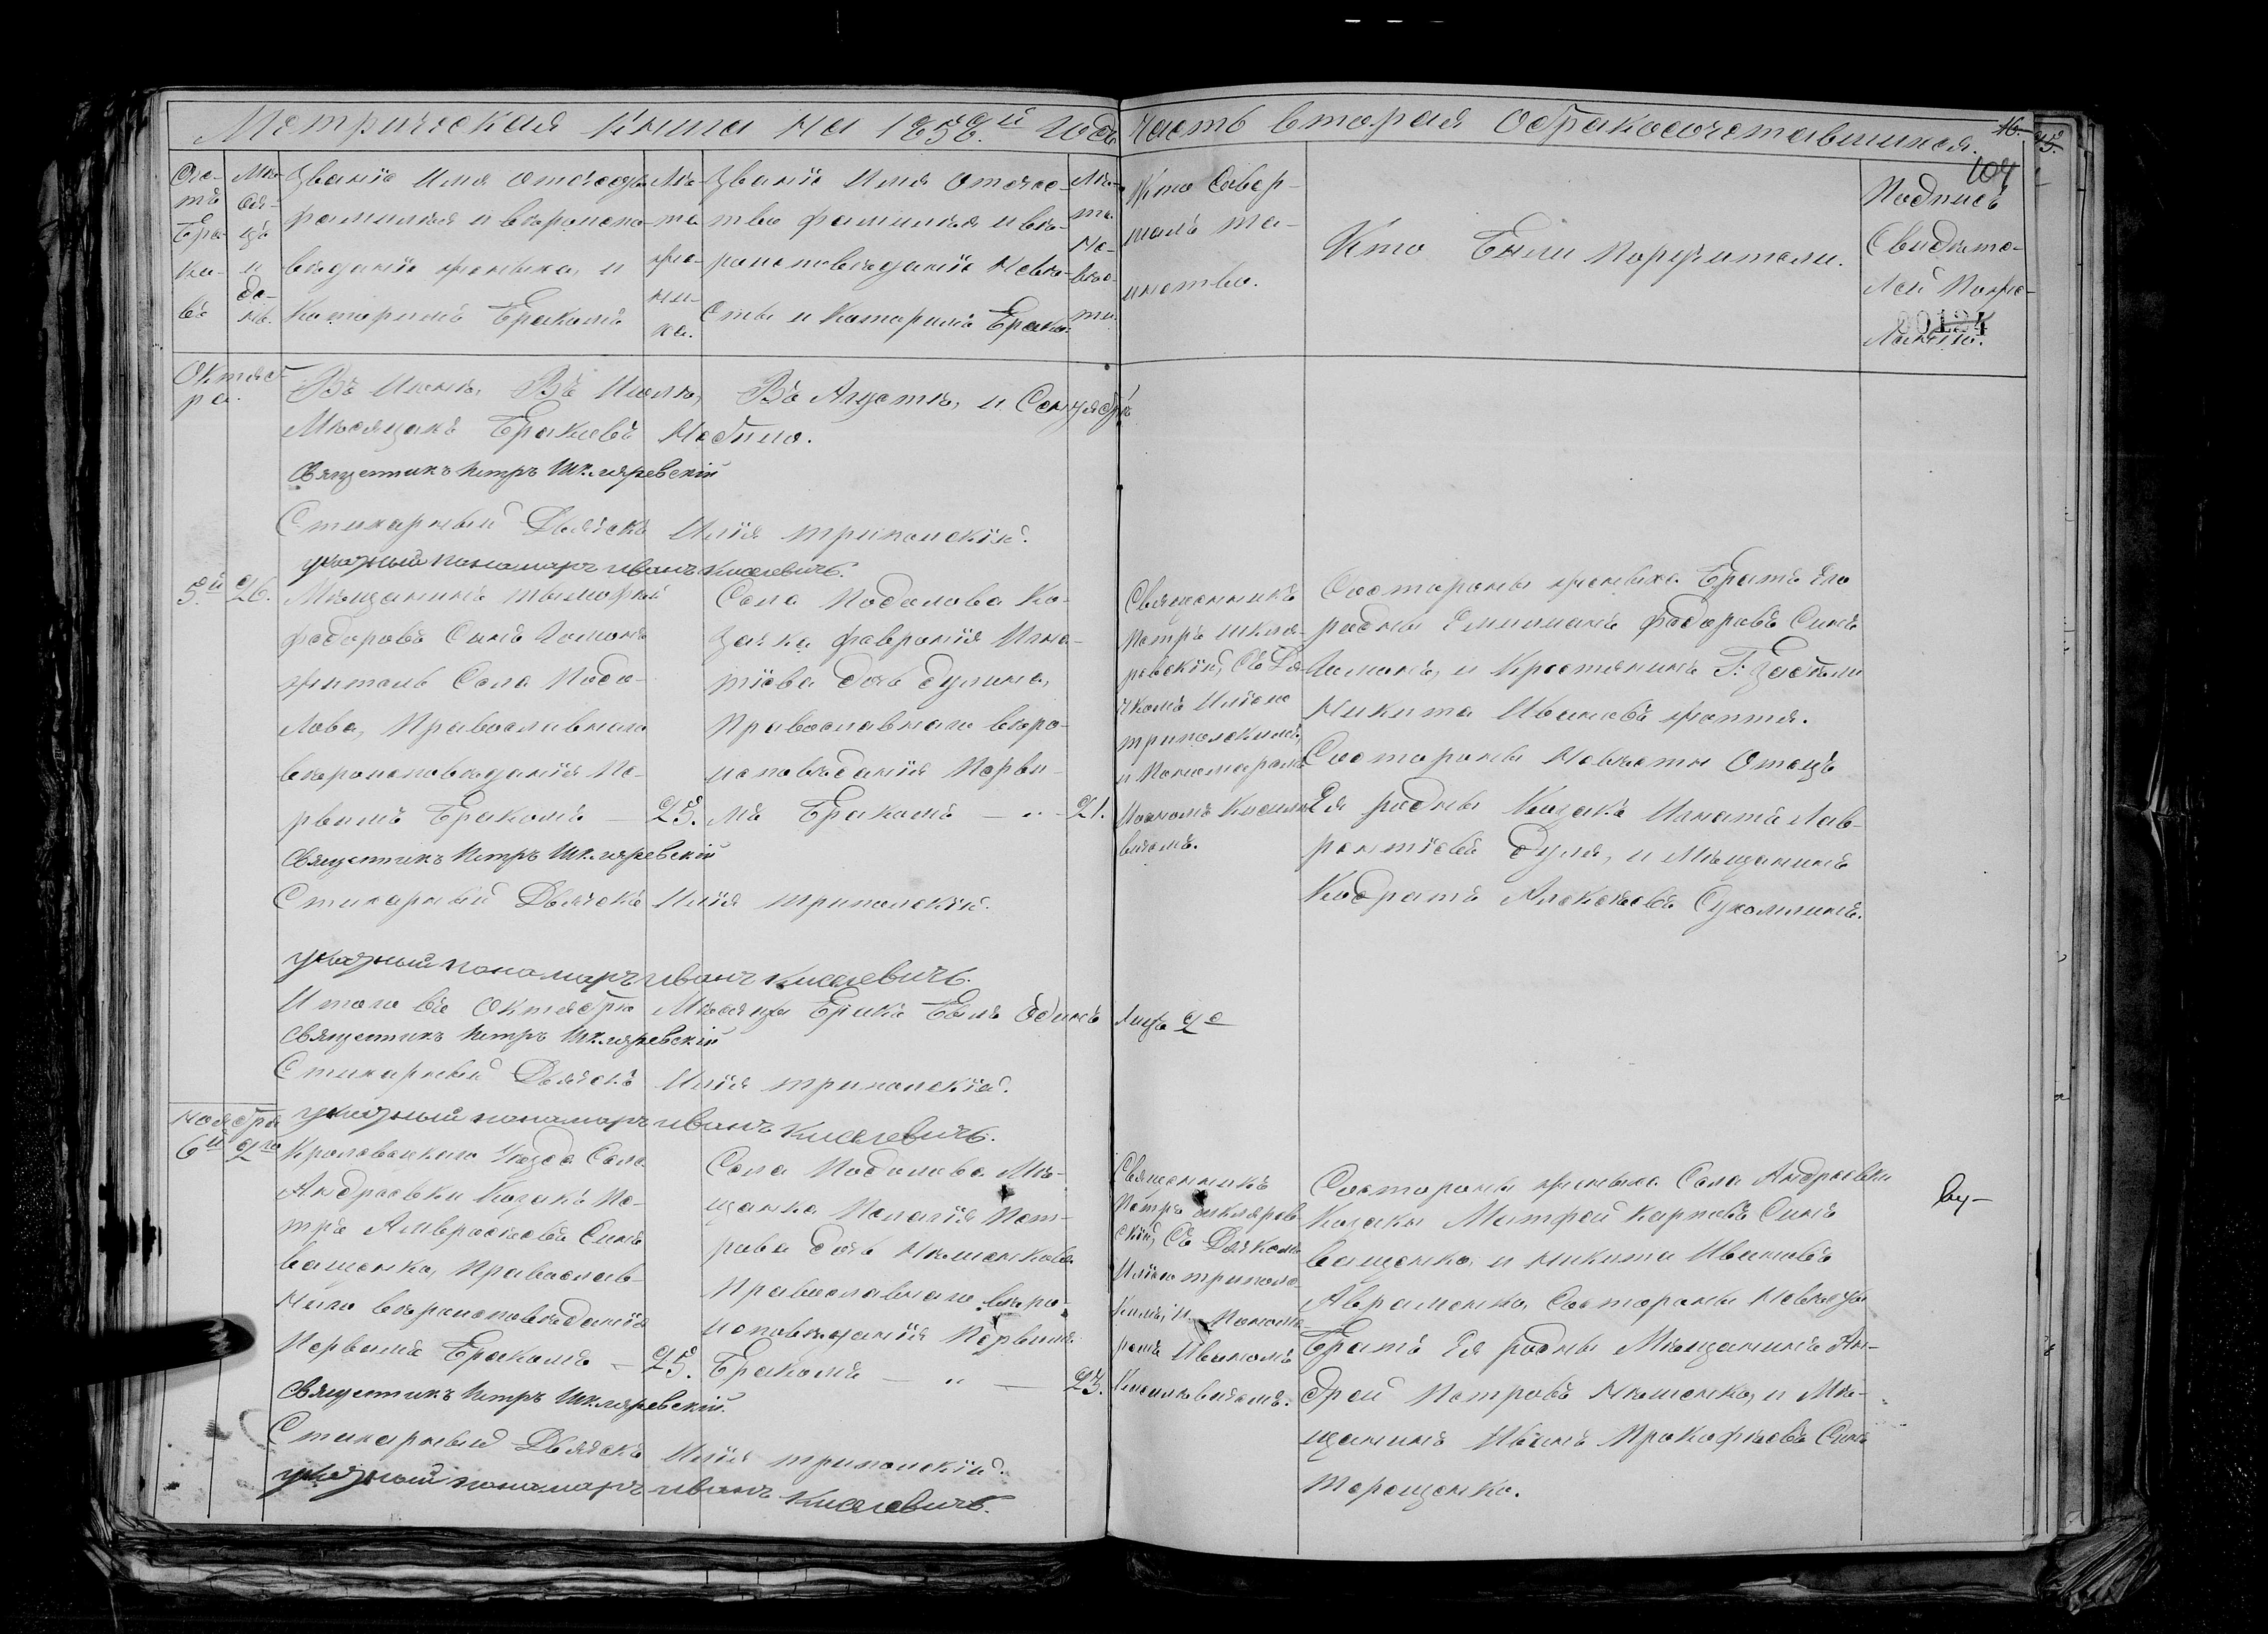 Метрическая книга на 1858й годъ
Часть вторая О бракосочетавшихся.
16.
104
Сче-
тъ
Бра-
ко-
въ
Мѣ-
ся-
цъ
и
де-
нь.
Званіе Имя Отчество
фамилия и вѣроиспо-
вѣданіе жениха, и
которымъ Бракомъ
Лѣ-
та
же-
ни-
ха.
Званіе Имя Отчес-
тво фамилия и вѣ-
роисповѣданіе Невѣ-
сты и которымъ Брако-
Лѣ-
та
Не-
вѣс-
ты.
Кто Совер-
шалъ та-
инство.
Кто Были Поручители.
Подпись
Свидѣте-
лей По же-
ланію.
00124
Октяб-
ра.
Въ Июнѣ, Въ Июлѣ, Въ Августѣ, и Сентябрѣ
Мѣсяцахъ Браковъ Небыло.
Священникъ Петръ Шкляревскій
Стихарный Дьячокъ Илія Трипольскій.
указный пономарь Иванъ Киселевичъ.
5й 26.
Мѣщанинъ Тымофей
Федоровъ Сынъ Гамана
житель Села Подо-
лова, Православнаго
вѣроисповѣданія Пе-
рвымъ Бракомъ — 25.
Села Подолова Ко-
зачка Феврония Игна-
тіева дочь Дулина,
Православнаго вѣро-
исповѣданія Первы-
мъ Бракомъ — „ - 21.
Священникъ
Петръ Шкля-
ревскій, Съ Дья-
чкомъ Иліею
Трипольскимъ,
и Пономаремъ
Иваномъ Киселе-
вичемъ.
Состороны жениха Братъ Его
родны Емилианъ Федоровъ Сынъ
Гаманъ, и Крестянинъ Г:
Никита Ивановъ
Состороны Невѣсты Отецъ
Ея родны Козакъ Игнатъ Лав-
рентіевъ Дуля, и Мѣщанинъ
Кодратъ Алексѣевъ Сухомлинъ.
Священникъ Петръ Шкляревскій
Стихарный Дьячокъ Илія Трипольскій.
указный пономарь Иванъ Киселевичъ.
Итого въ Октябрѣ Мѣсяцѣ Брикъ Былъ Одинъ Лицъ 2е
Священникъ Петръ Шкляревскій
Стихарный Дьячокъ Илія Трипольскій.
указный пономарь Иванъ Киселевичъ.
Ноября
6й 2го
Кролевецкого Уѣзда Села
Андреевки Козакъ Пе-
тръ Амвросіевъ Сынъ
Ващенко, Православ-
наго вѣроисповѣданія
Первымъ Бракомъ — 25.
Села Подолова Мѣ-
щанка Пелагія Пет-
рова дочь
Православнаго вѣро-
исповѣданія Первымъ
Бракомъ — „ — 23.
Священникъ
Петръ Шклярев-
скій, Съ Дьячкомъ
Иліею Триполь-
скимъ, и Понома-
ремъ Иваномъ
Киселевичемъ.
Состороны жениха Села Андреевки
Козаки Матфей Карповъ Сынъ
Ващенко, и Никита Ивановъ
Авраменко, Состороны Невѣсты
Братъ Ея родны Мѣщанинъ Ан-
дрей Петровъ и Мѣ-
щанинъ Иванъ Прокофьевъ Сынъ
Терещенко.
Священникъ Петръ Шкляревскій.
Стихарный Дьячокъ Илія Трипольскій.
указный пономарь Иванъ Киселевичъ.